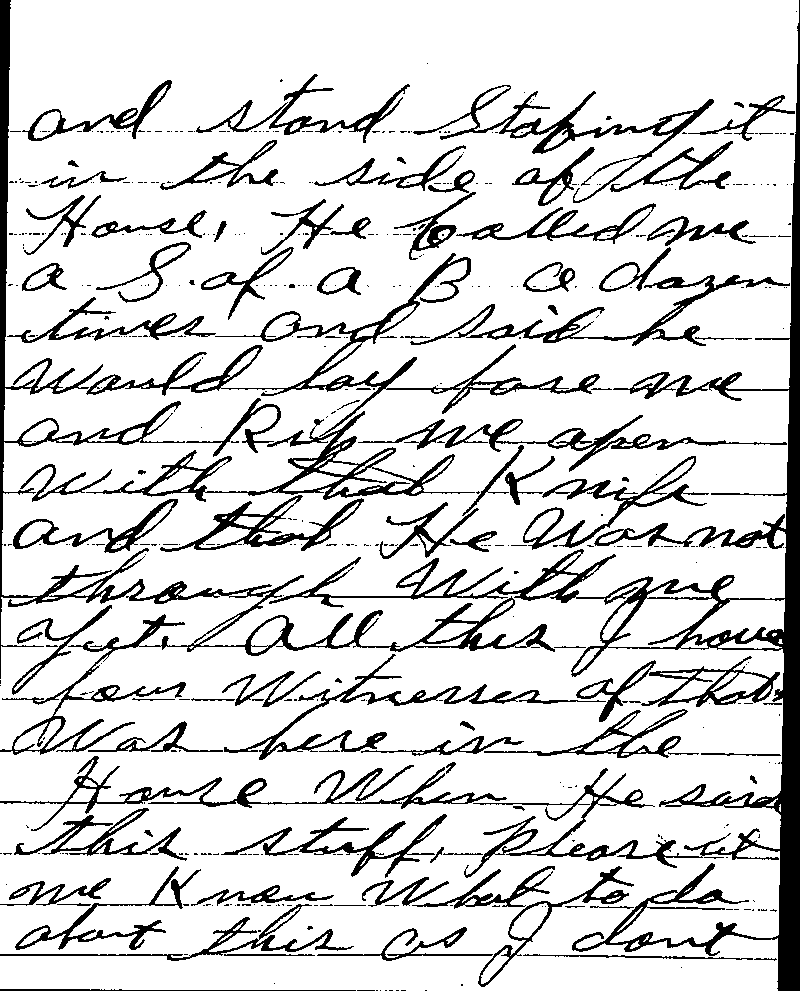 and stand Stabing it
in the side of the
House, He Called me
a S. of. a B a dozen
times and said he
Would lay fore me
and Rip me open
With that Knife
and that He Was not
through With me
yet. All this I have
four Witnesses of that
Was here in the
House When He said
this stuff, Please let
me Know What to do
about this as I dont